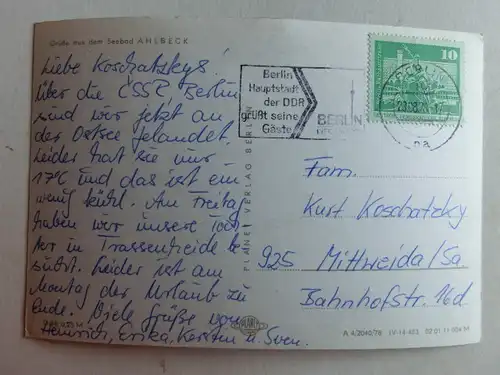 Grüße aus dem Seebad AHLBECK
Liebe Koschatzkys!
Über die ČSSR, Berlin
sind wir jetzt an
der Ostsee gelandet.
Leider hat sie nur
17°C und das ist ein
wenig kühl. Am Freitag
haben wir unsere Toch-
ter in Trassenheide be
sucht. Leider ist am
Montag der Urlaub zu
Ende. Viele Grüße von
Heinrich, Erika, Kersten u. Sven.
PLANET VERLAG BERLIN
Berlin
Hauptstadt
der DDR
grüßt seine
Gäste
BERLIN
10
Fam.
Kurt Koschatzky
925 Mittweida/Sa.
Bahnhofstr. 16d
A 4/2040/78 IV-14-483 02 01 11 004 M